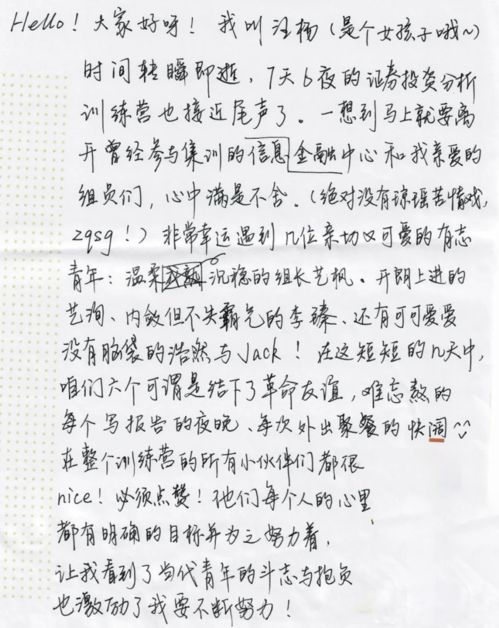 Hello！大家好呀！我叫汪杨（是个女孩子哦~）
时间转瞬即逝，7天6夜的证券投资分析
训练营也接近尾声了。一想到马上就要离
开曾经参与集训的信息金融中心和我亲爱的
组员们，心中满是不舍。（绝对没有琼瑶苦情戏，
zqsg！）非常幸运遇到几位亲切又可爱的有志
青年：温柔沉稳的组长艺枫、开朗上进的
艺洵、内敛但不失霸气的李臻、还有可可爱爱
没有脑袋的浩然与Jack！在这短短的几天中，
咱们六个可谓是结下了革命友谊，难忘熬的
每个写报告的夜晚、每次外出聚餐的快闹
在整个训练营的所有小伙伴们都很
nice！必须点赞！他们每个人的心里
都有明确的目标并为之努力着，
让我看到了当代青年的斗志与抱负
也激励了我要不断努力！